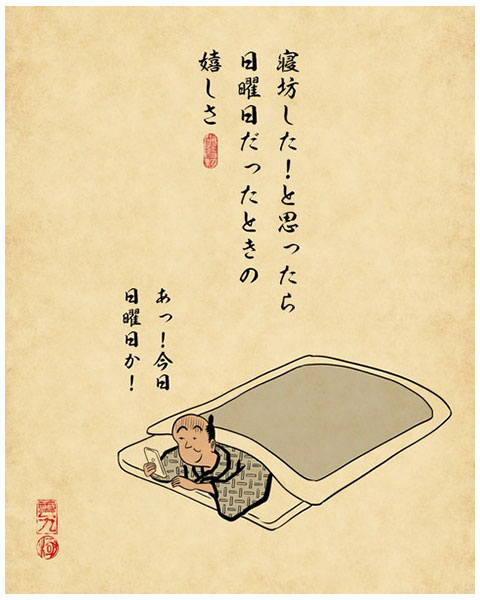 寝坊した！と思ったら
日曜日だったときの
嬉しさ
あっ！今日
日曜日か！